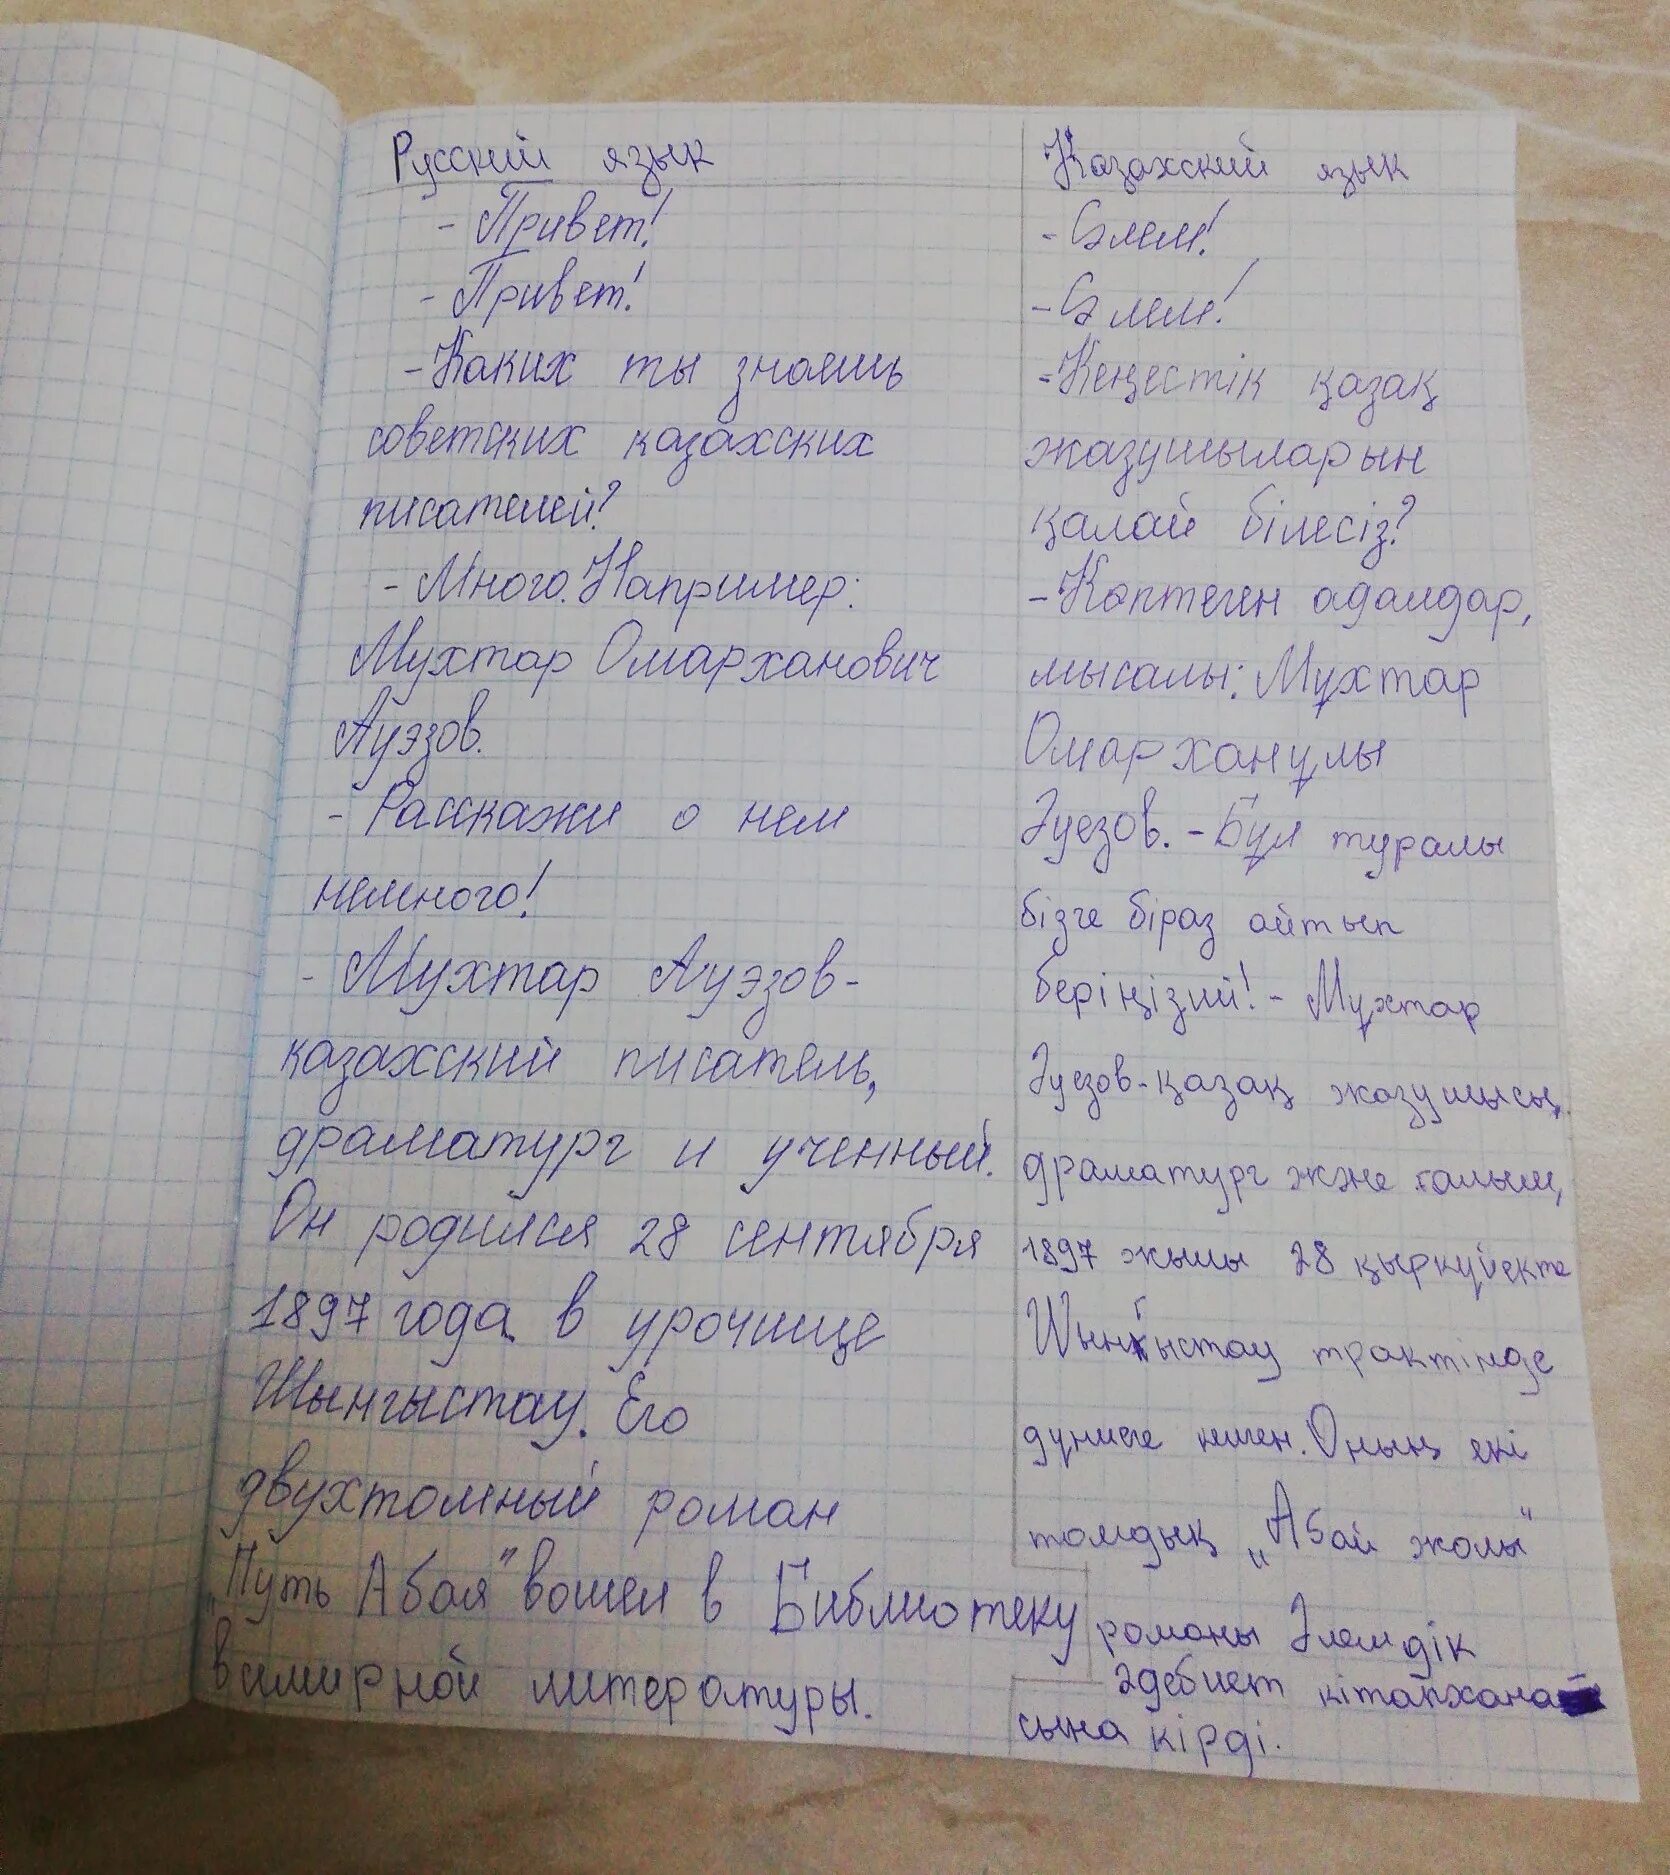 Русский язык
- Привет!
- Привет!
- Каких ты знаешь
советских казахских
писателей?
- Много. Например:
Мухтар Омарханович
Ауэзов.
- Расскажи о нем
немного!
- Мухтар Ауэзов -
казахский писатель,
драматург и ученный.
Он родился 28 сентября
1897 года в урочище
Шынгыстау. Его
двухтомный роман
„Путь Абая" вошел в Библиотеку
всемирной литературы.
Казахский язык
- Сәлем!
- Сәлем!
- Кеңестік қазақ
жазушыларын
қалай білесіз?
- Көптеген адамдар,
мысалы: Мұхтар
Омарханұлы
Әуезов. - Бұл туралы
бізге біраз айтып
беріңізші! - Мұхтар
Әуезов - қазақ жазушысы,
драматург және ғалым,
1897 жылы 28 қыркүйекте
Шынғыстау трактінде
дүниеге келген. Оның екі
томдық „Абай жолы"
романы Әлемдік
әдебиет кітапхана
сына кірді.